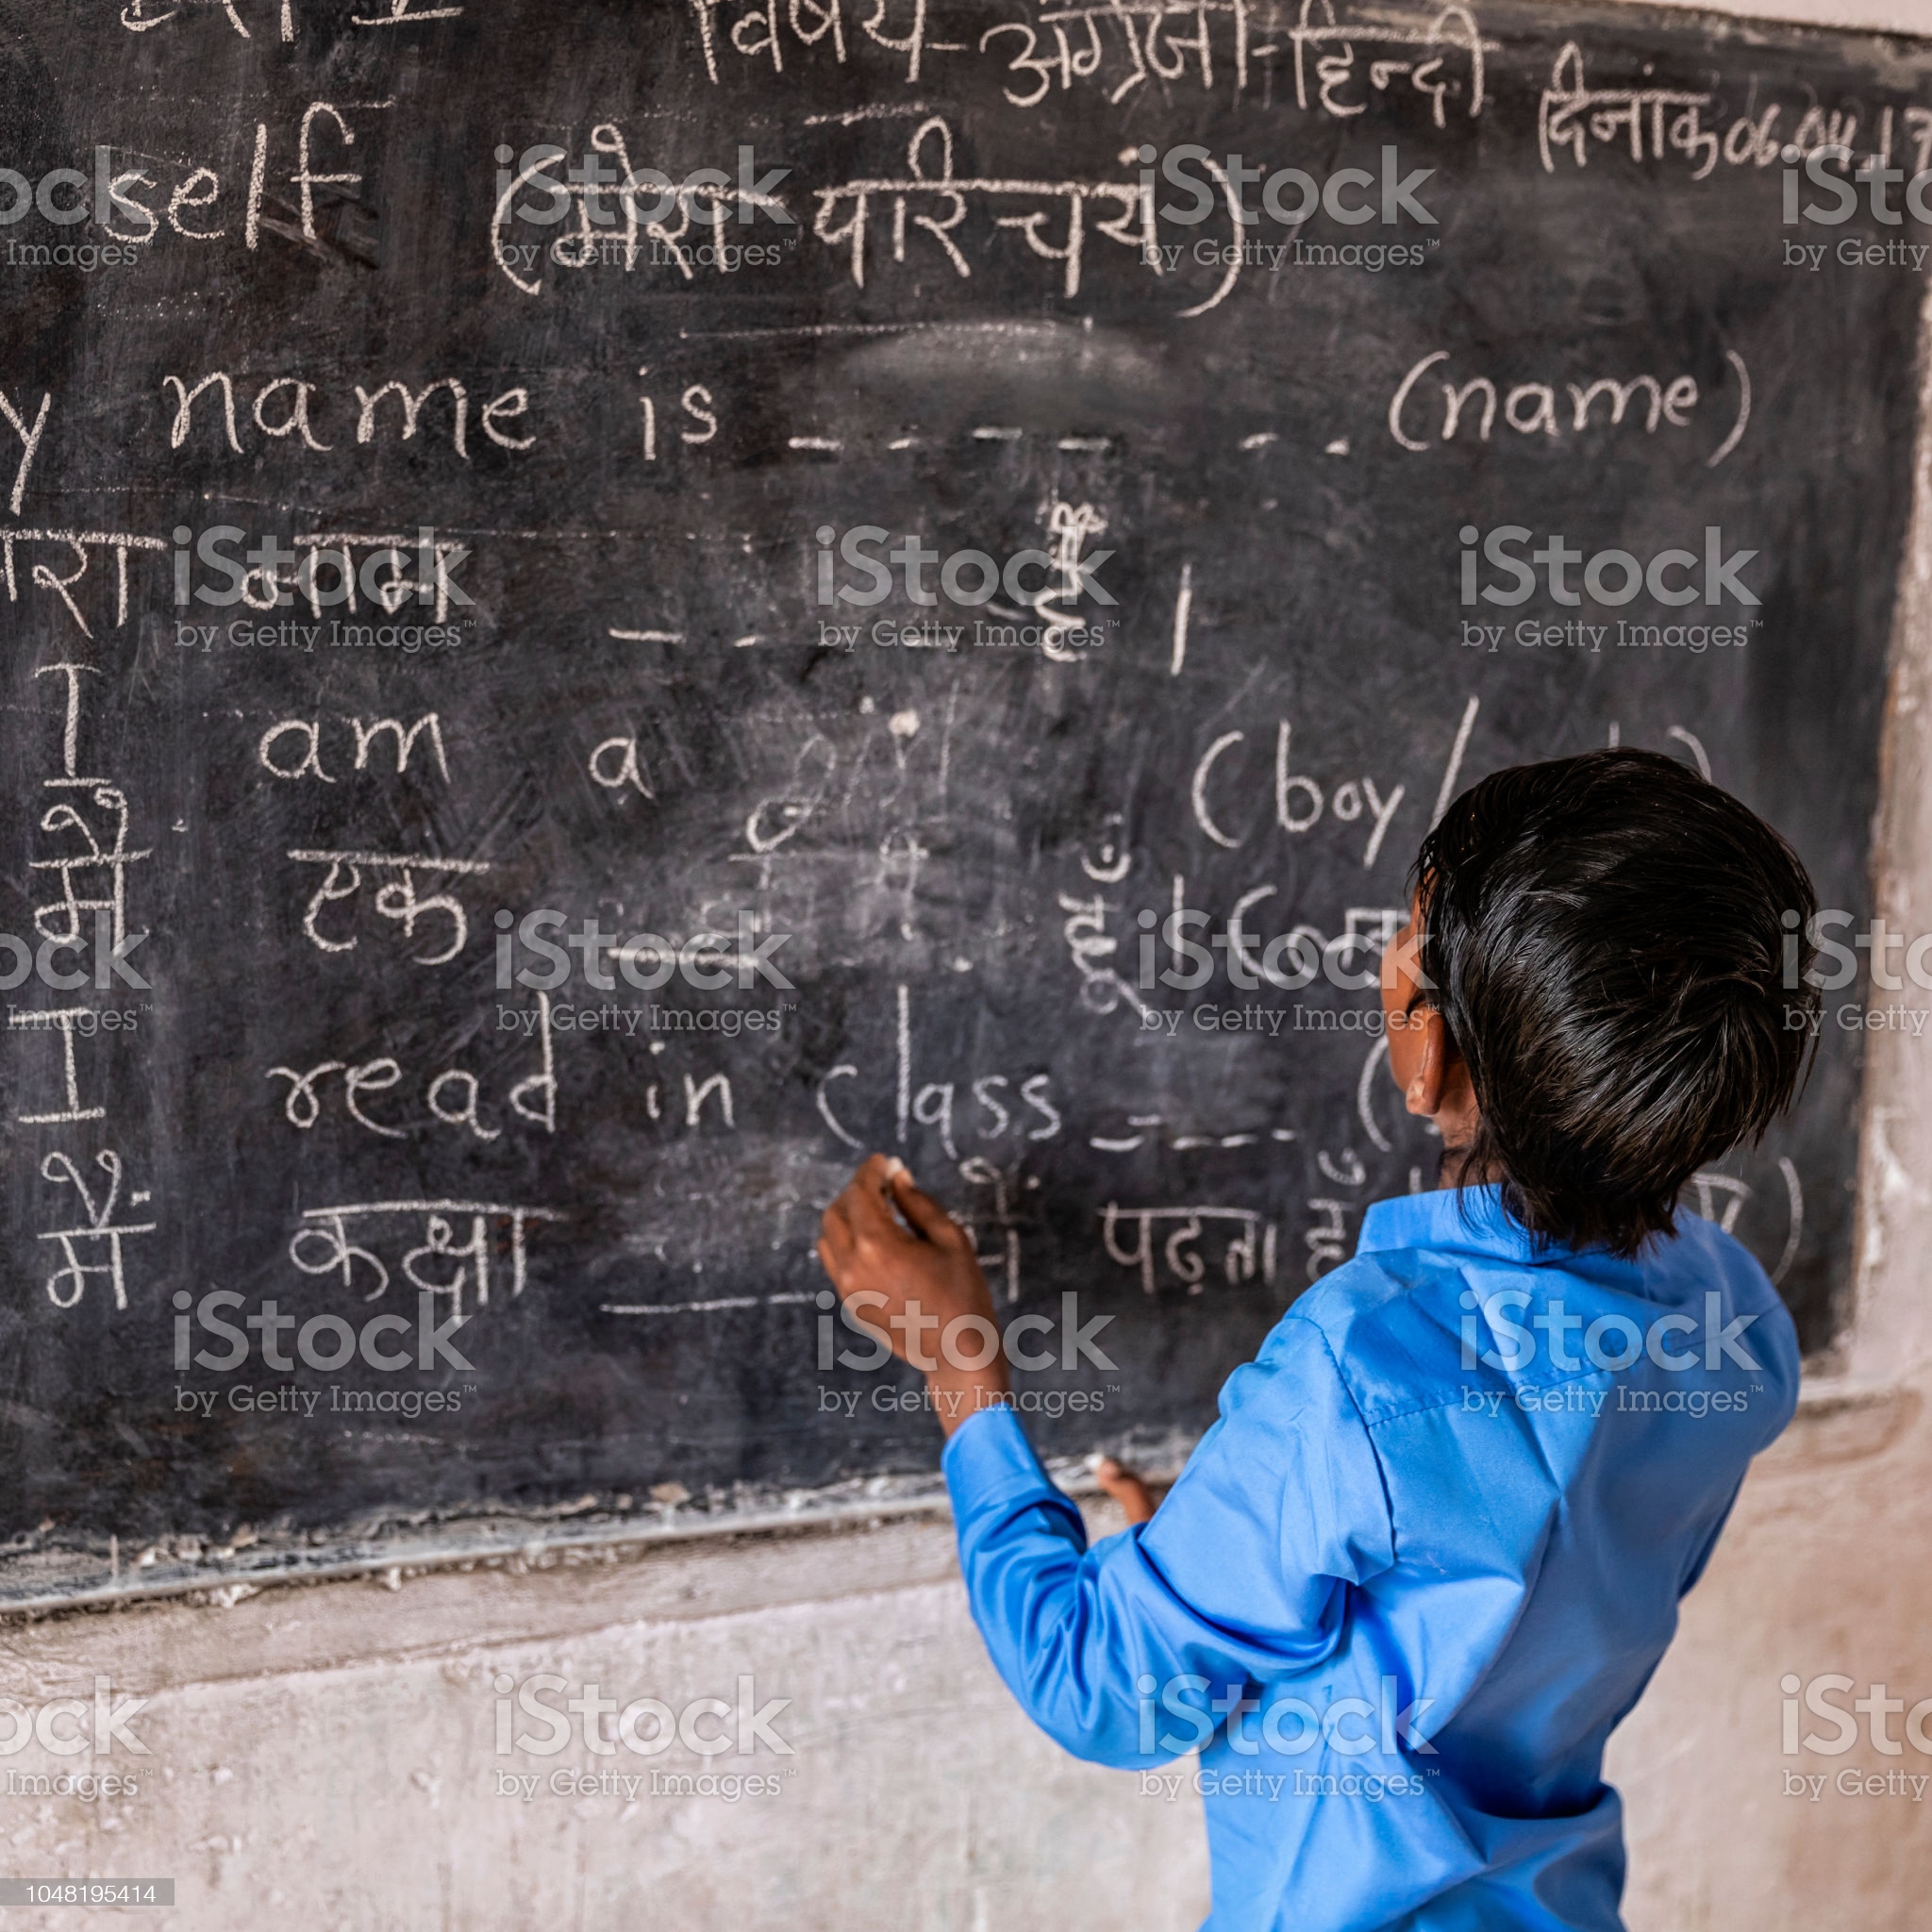 विषय - अंग्रेजी - हिन्दी दिनांक 06.04.17
self (मेरा परिचय)
y name is _ _ _ _ _ _ (name)
रा नाम _ _ _ _ है ।
I am a (boy/
मैं एक _ _ हूँ । (लड़
I read in class _ _ _ _ (
मैं कक्षा ____ में पढ़ता हूँ )
iStock
by Getty Images™
1048195414